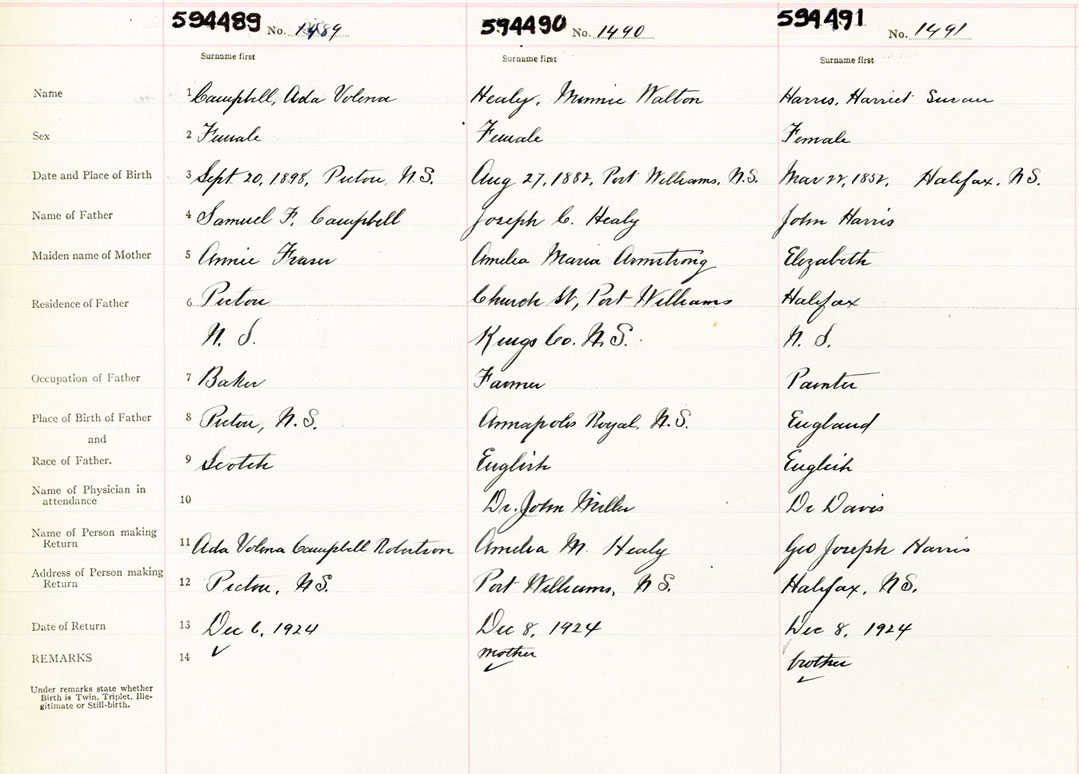 594489 No. 1489 594490 No. 1490 594491 No. 1491
Surname first Surname first Surname first
Name 1 Campbell, Ada Volena Healy, Minnie Walton Harris, Harriet Susan
Sex 2 Female Female Female
Date and Place of Birth 3 Sept 20, 1898, Pictou, N.S. Aug 27, 1882, Port Williams, N.S. Mar 22, 1852, Halifax, N.S.
Name of Father 4 Samuel F. Campbell Joseph C. Healy John Harris
Maiden name of Mother 5 Annie Fraser Amelia Maria Armstrong Elizabeth
Residence of Father 6 Pictou Church St, Port Williams Halifax
N. S. Kings Co. N.S. N. S.
Occupation of Father 7 Baker Farmer Painter
Place of Birth of Father 8 Pictou, N.S. Annapolis Royal, N.S. England
and
Race of Father. 9 Scotch English English
Name of Physician in
attendance 10 Dr. John Miller Dr Davis
Name of Person making
Return 11 Ada Volena Campbell Robertson Amelia M. Healy Geo Joseph Harris
Address of Person making
Return 12 Pictou, N.S. Port Williams, N.S. Halifax, N.S.
Date of Return 13 Dec 6, 1924 Dec 8, 1924 Dec 8, 1924
REMARKS 14 mother brother
Under remarks state whether
Birth is Twin, Triplet, Ille-
gitimate or Still-birth.